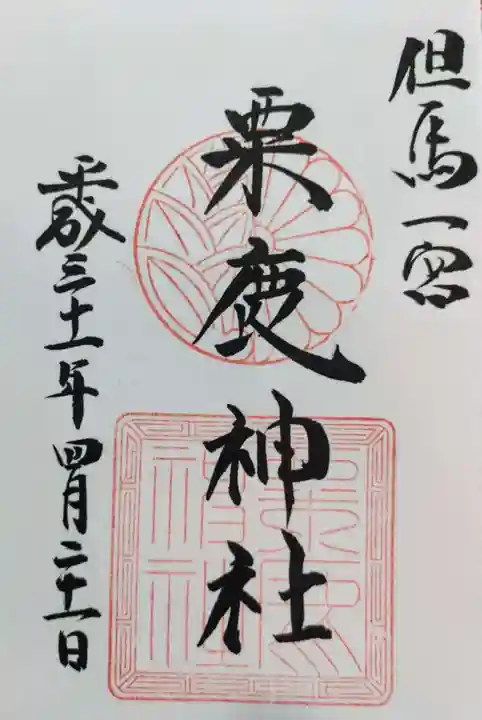 但馬一宮
粟鹿神社
平成三十一年四月二十一日
粟鹿神社